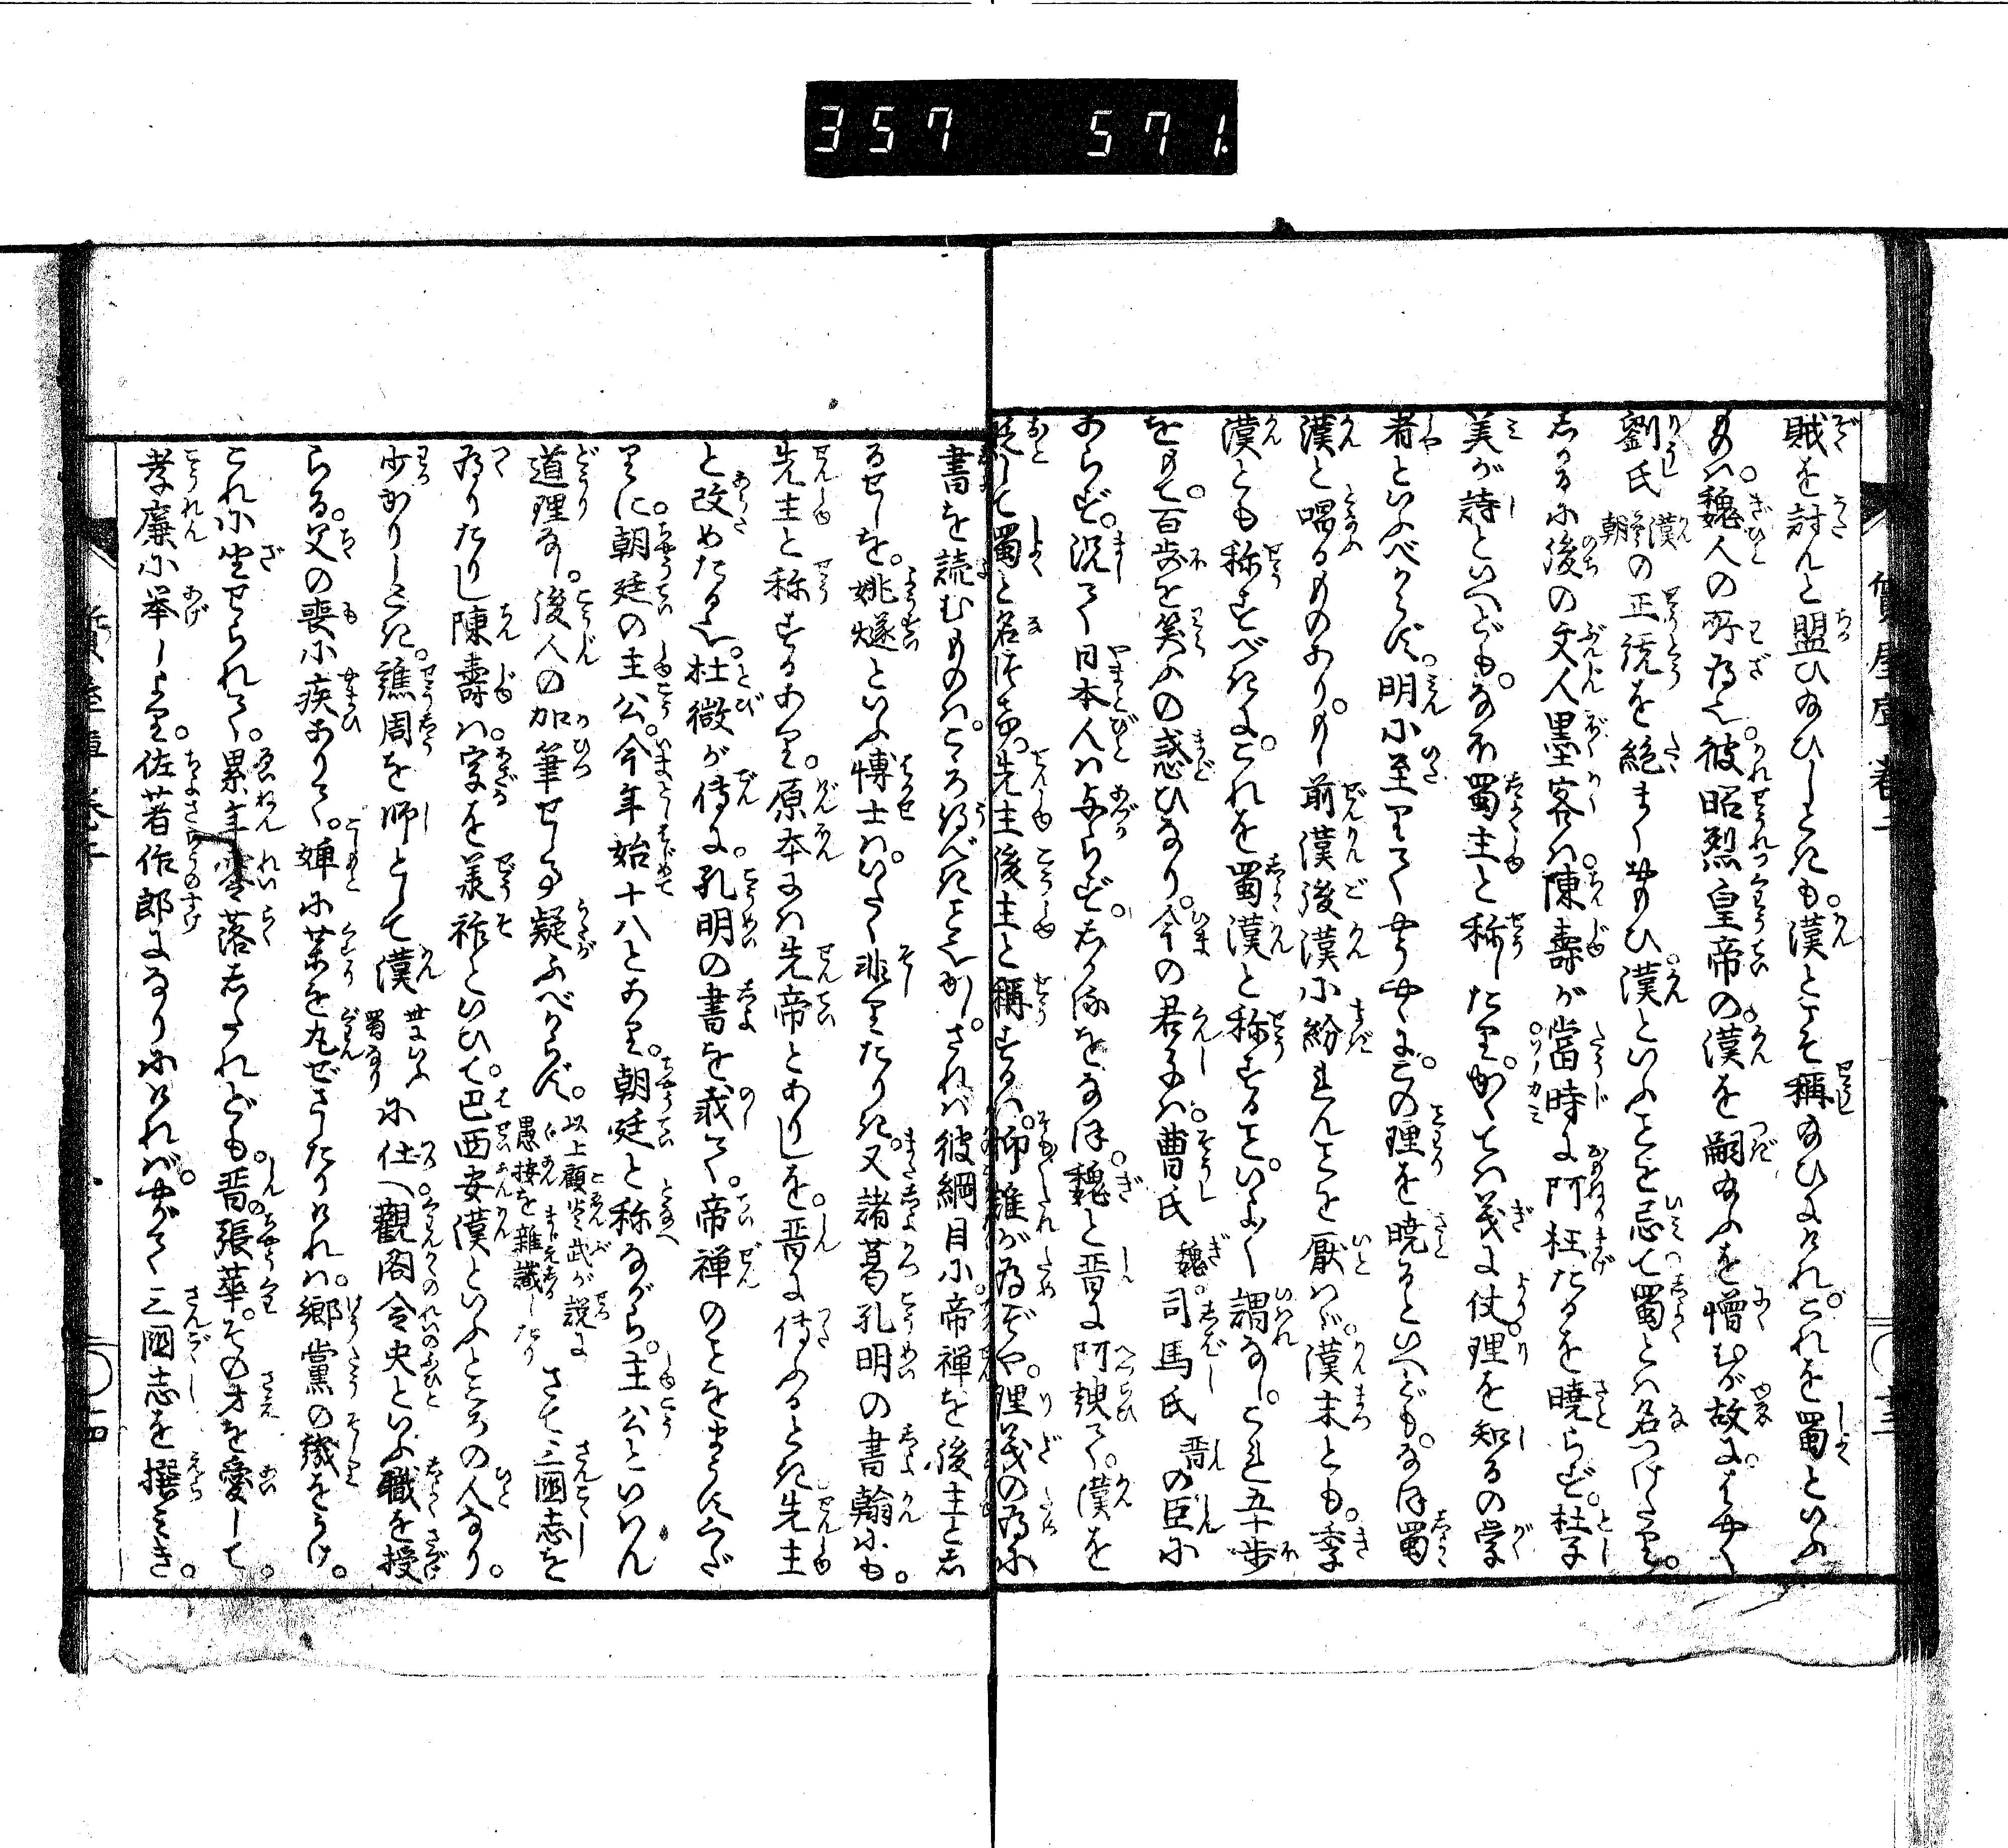 357 571.
質屋庫 巻二
賊を討んと盟ひ給ひしときも。漢とこそ稱給ひけれ。これを蜀といふ
ものは。魏人の所為也。彼昭烈皇帝の。漢を嗣給ふを憎むが故に。はやく
劉氏漢朝の正統を絶まく思ひ。漢といふことを忌て蜀とは名つけたり。
しかるに後の文人墨客は。陳壽が當時に阿枉たるを曉らず。杜子
美が詩といへども。なほ蜀主と稱したり。かくては義に仗。理を知るの学
者といふべからず。明に至りてやうやくに。この理を暁るといへども。なほ蜀
漢と唱るものあり。もし前漢後漢に紛れんことを厭はゞ。漢末とも。季
漢とも称すべきに。これを蜀漢と称することは。いよゝ謂なし。これ五十歩
をもて。百歩を笑ふの惑ひなり。今の君子は。曹氏魏。司馬氏晋の臣に
あらず。况て日本人は与らず。しかるをなほ。魏と晋に阿諛て。漢を
貶して蜀と名づけ。先主後主と稱するは。抑誰が為ぞや。理義の為に
書を読むものは。こゝろ得べきことぞかし。されば彼綱目に。帝禅を後主とし
るせしを。姚燧といふ博士は。いたく非りたりき。又諸葛孔明の書翰にも。
先主と称するあり。原本には先帝とありしを。晋に傳ふるとき先主
と改めたる也。杜微が傳に。孔明の書を載て。帝禅のことをまうすくだ
りに。朝廷の主公。今年始十八とあり。朝廷と称ながら。主公といはん
道理なし。後人の加筆せし事疑ふべからず。以上顧炎武が説に愚按を雑識したり さて三國志を
作りたりし陳壽は。字を義祚といひて。巴西安漢といふところの人なり。
少かりしとき。譙周を師として漢世にいふ蜀なりに仕へ。觀閣令史といふ職を授
らる。父の喪に疾ありて。婢に薬を丸ぜさしたりければ。郷黨の譏をうけ。
これに坐せられて。累年零落したれども。晋の張華。その才を愛して。
孝廉に举しより。佐著作郎になりにければ。やがて三國志を撰みき。